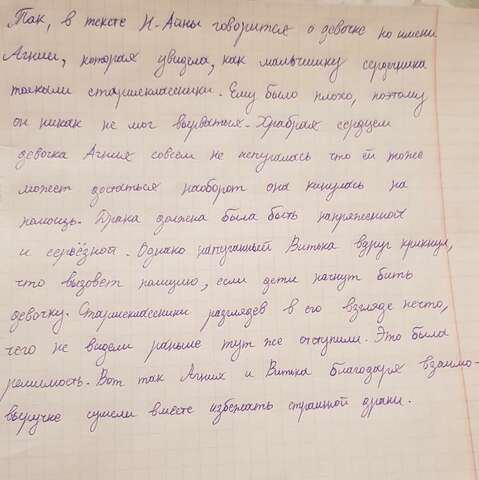 Так, в тексте Н. Аины говорится о девочке по имени
Агнии, которая увидела, как мальчишку сердечника
толкали старшеклассники. Ему было плохо, поэтому
он никак не мог вырваться. Храбрая сердцем
девочка Агния совсем не испугалась что ей тоже
может достаться наоборот она кинулась на
помощь. Драка должна была быть напряженной
и серьёзной. Однако напуганный Витька вдруг крикнул,
что вызовет полицию, если дети начнут бить
девочку. Старшеклассники разглядев в его взгляде нечто,
чего не видели раньше тут же отступили. Это была
решимость. Вот так Агния и Витька благодаря взаимо-
выручке сумели вместе избежать страшной драки.